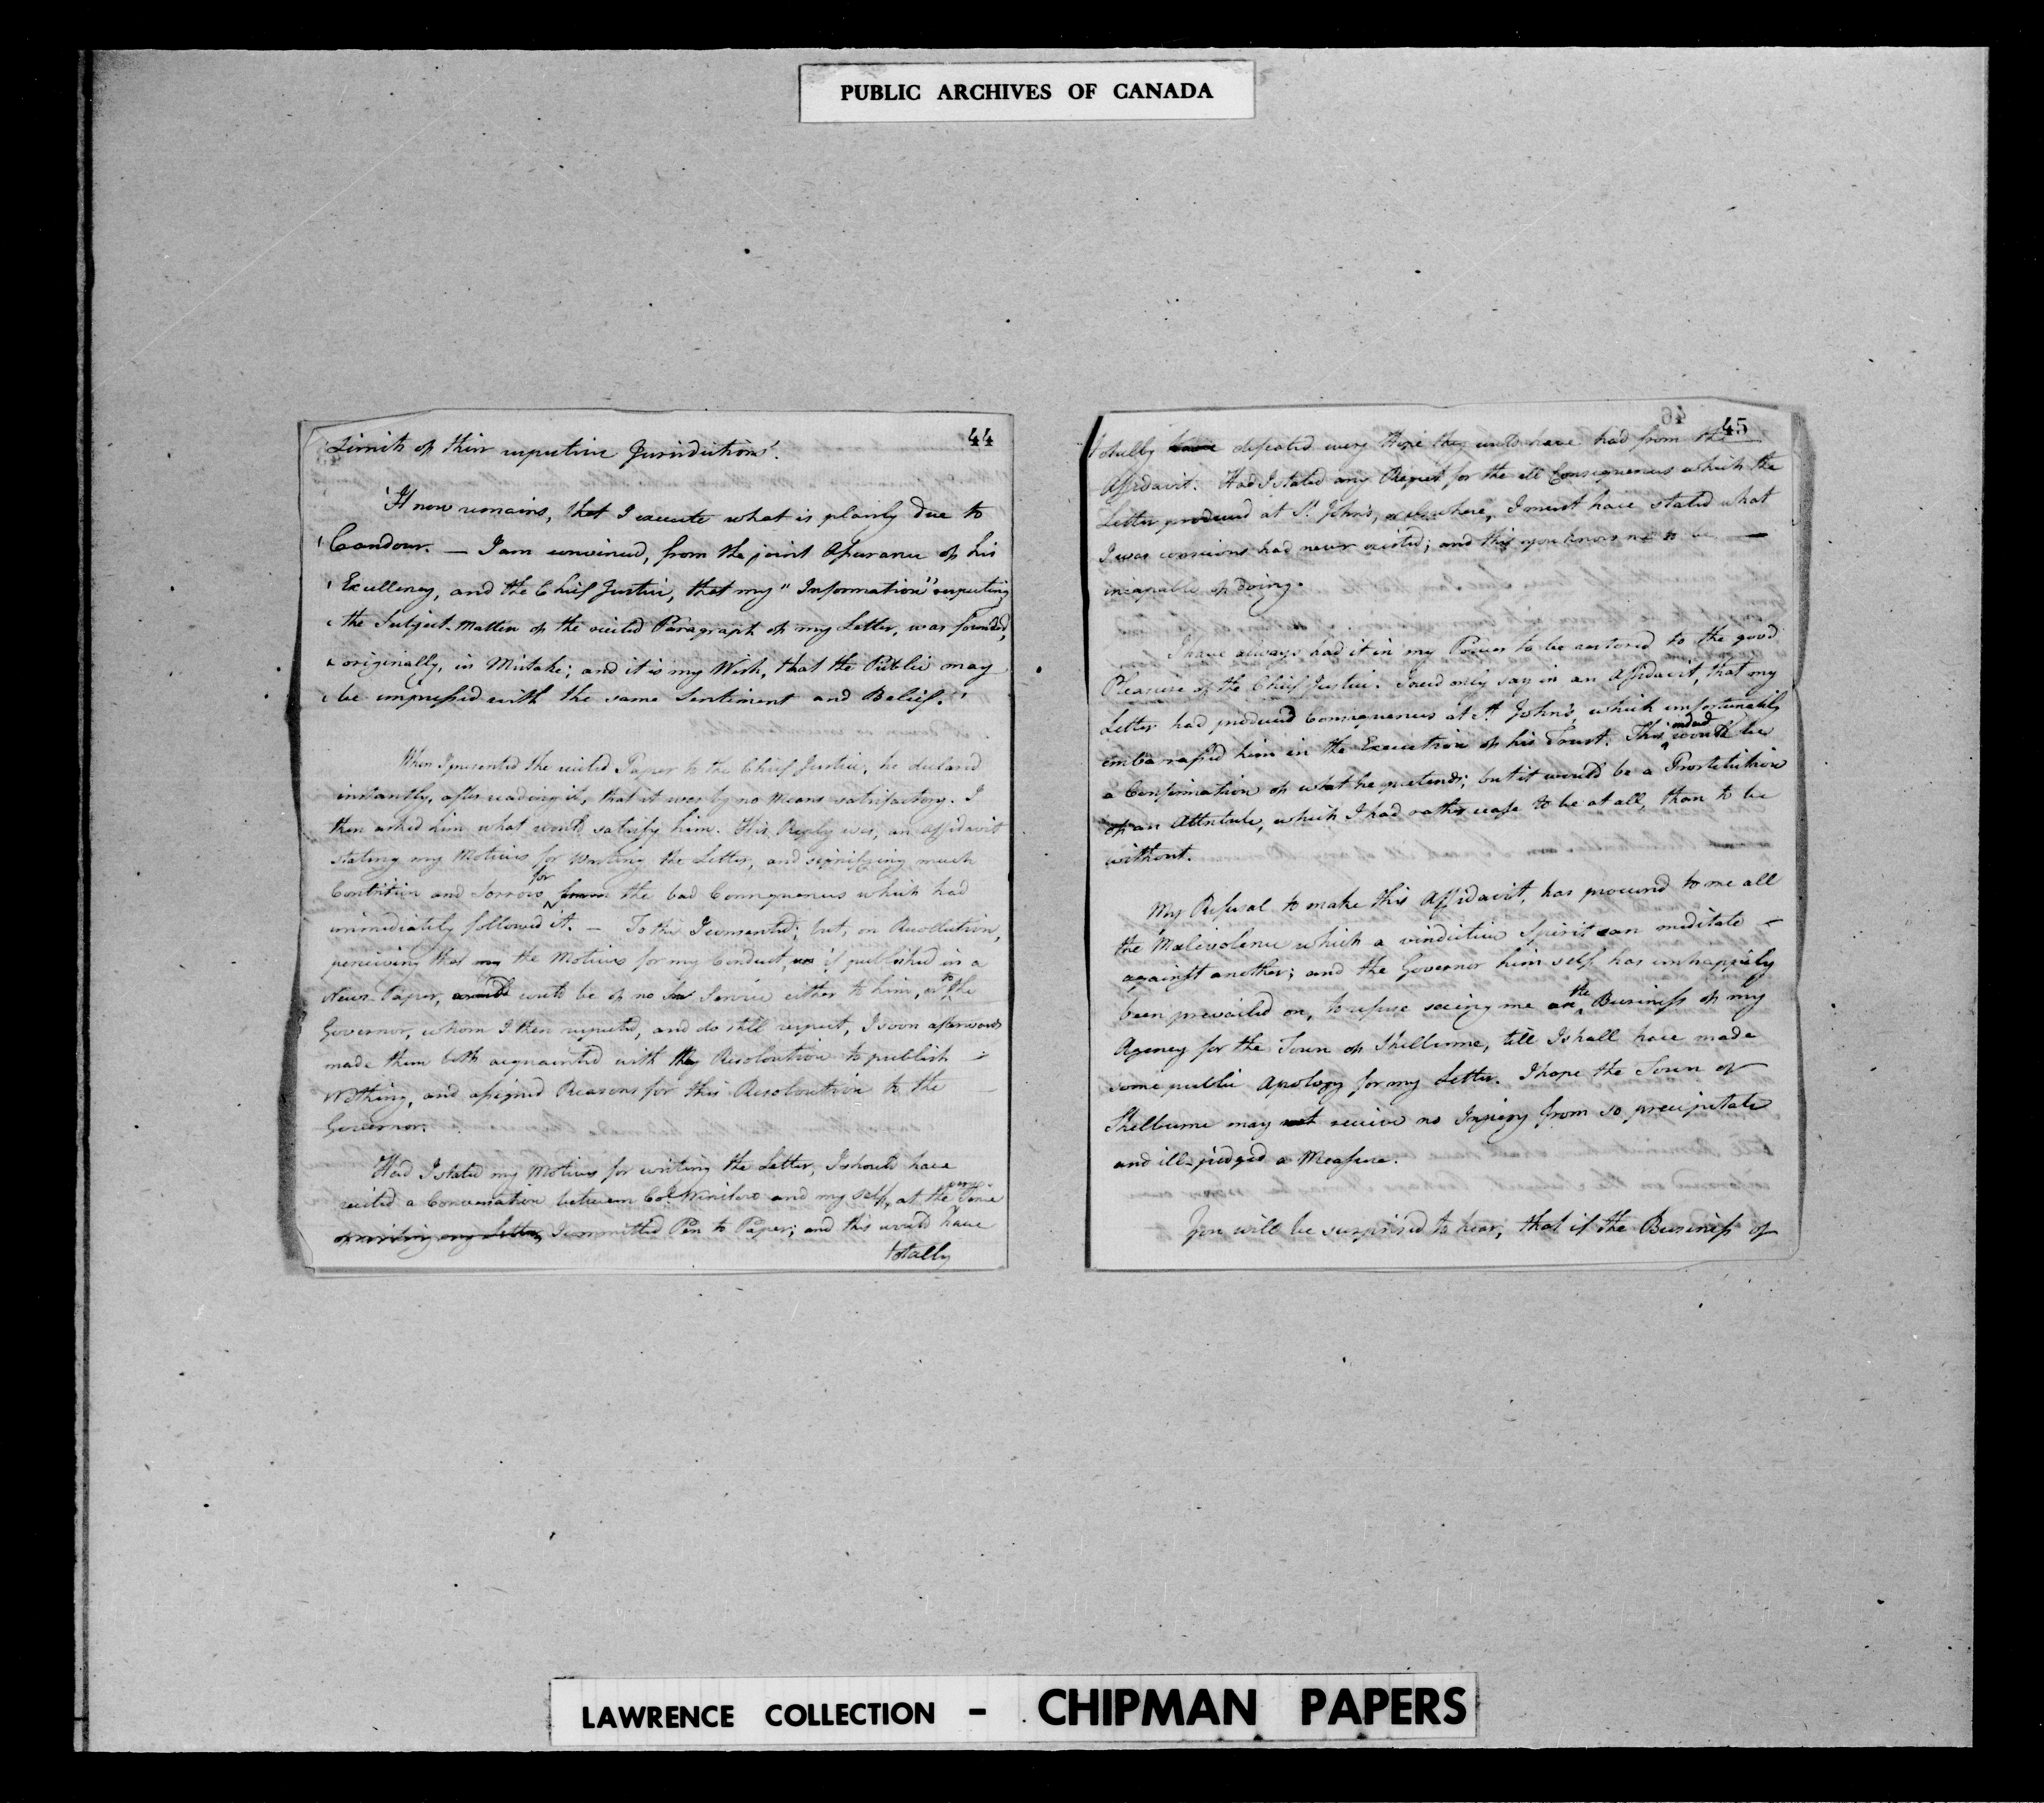 PUBLIC ARCHIVES OF CANADA
44
'Limits of their respective Jurisdictions'.
'It now remains, that I execute what is plainly due to
'Candour. — I am convinced, from the joint Assurance of his
'Excellency, and the Chief Justice, that my "Information" respecting
'the Subject-Matter of the recited Paragraph of my Letter, was founded,
'originally, in Mistake; and it is my Wish, that the Public may
'be impressed with the same Sentiment and Belief.'
When I presented the recited Paper to the Chief Justice, he declared
instantly, after reading it, that it was by no Means satisfactory. I
then asked him what would satisfy him. His Reply was, an Affidavit
stating my Motives for writing the Letter, and signifying much
Contrition and Sorrow for the bad Consequences which had
immediately followed it. — To this I consented; but, on Recollection,
perceiving that the Motives for my Conduct, if published in a
News-Paper, would be of no Service either to him, or to the
Governor, whom I then respected, and do still respect, I soon afterwards
made them both acquainted with my Resoloution to publish —
Nothing, and assigned Reasons for this Resoloution to the —
Governor.
Had I stated my Motives for writing the Letter, I should have
recited a Conversation between Col. Winslow and my self, at the very Time
of writing my Letter, I committed Pen to Paper; and this would have
totally
45
totally have defeated every Hope they could have had from the
Affidavit. Had I stated any Regret for the ill Consequences which the
Letter produced at St. John's, or elsewhere, I must have stated what
I was conscious had never existed; and this you know me to be —
incapable of doing.
I have always had it in my Power to be restored to the good
Pleasure of the Chief Justice. I need only say in an Affidavit, that my
Letter had produced Consequences at St. John's, which unfortunately
embarrassed him in the Execution of his Trust. This indeed would be
a Confirmation of what he pretends; but it would be a Prostitution
of an Attribute, which I had rather cease to be at all, than to be
without.
My Refusal to make this Affidavit, has procured to me all
the Malevolence which a vindictive Spirit can meditate —
against another; and the Governor himself has unhappily
been prevailed on, to refuse seeing me on the Business of my
Agency for the Town of Shelburne, till I shall have made
some public Apology for my Letter. I hope the Town of
Shelburne may receive no Injury from so precipitate
and ill-judged a Measure.
You will be surprised to hear, that if the Business of
LAWRENCE COLLECTION - CHIPMAN PAPERS